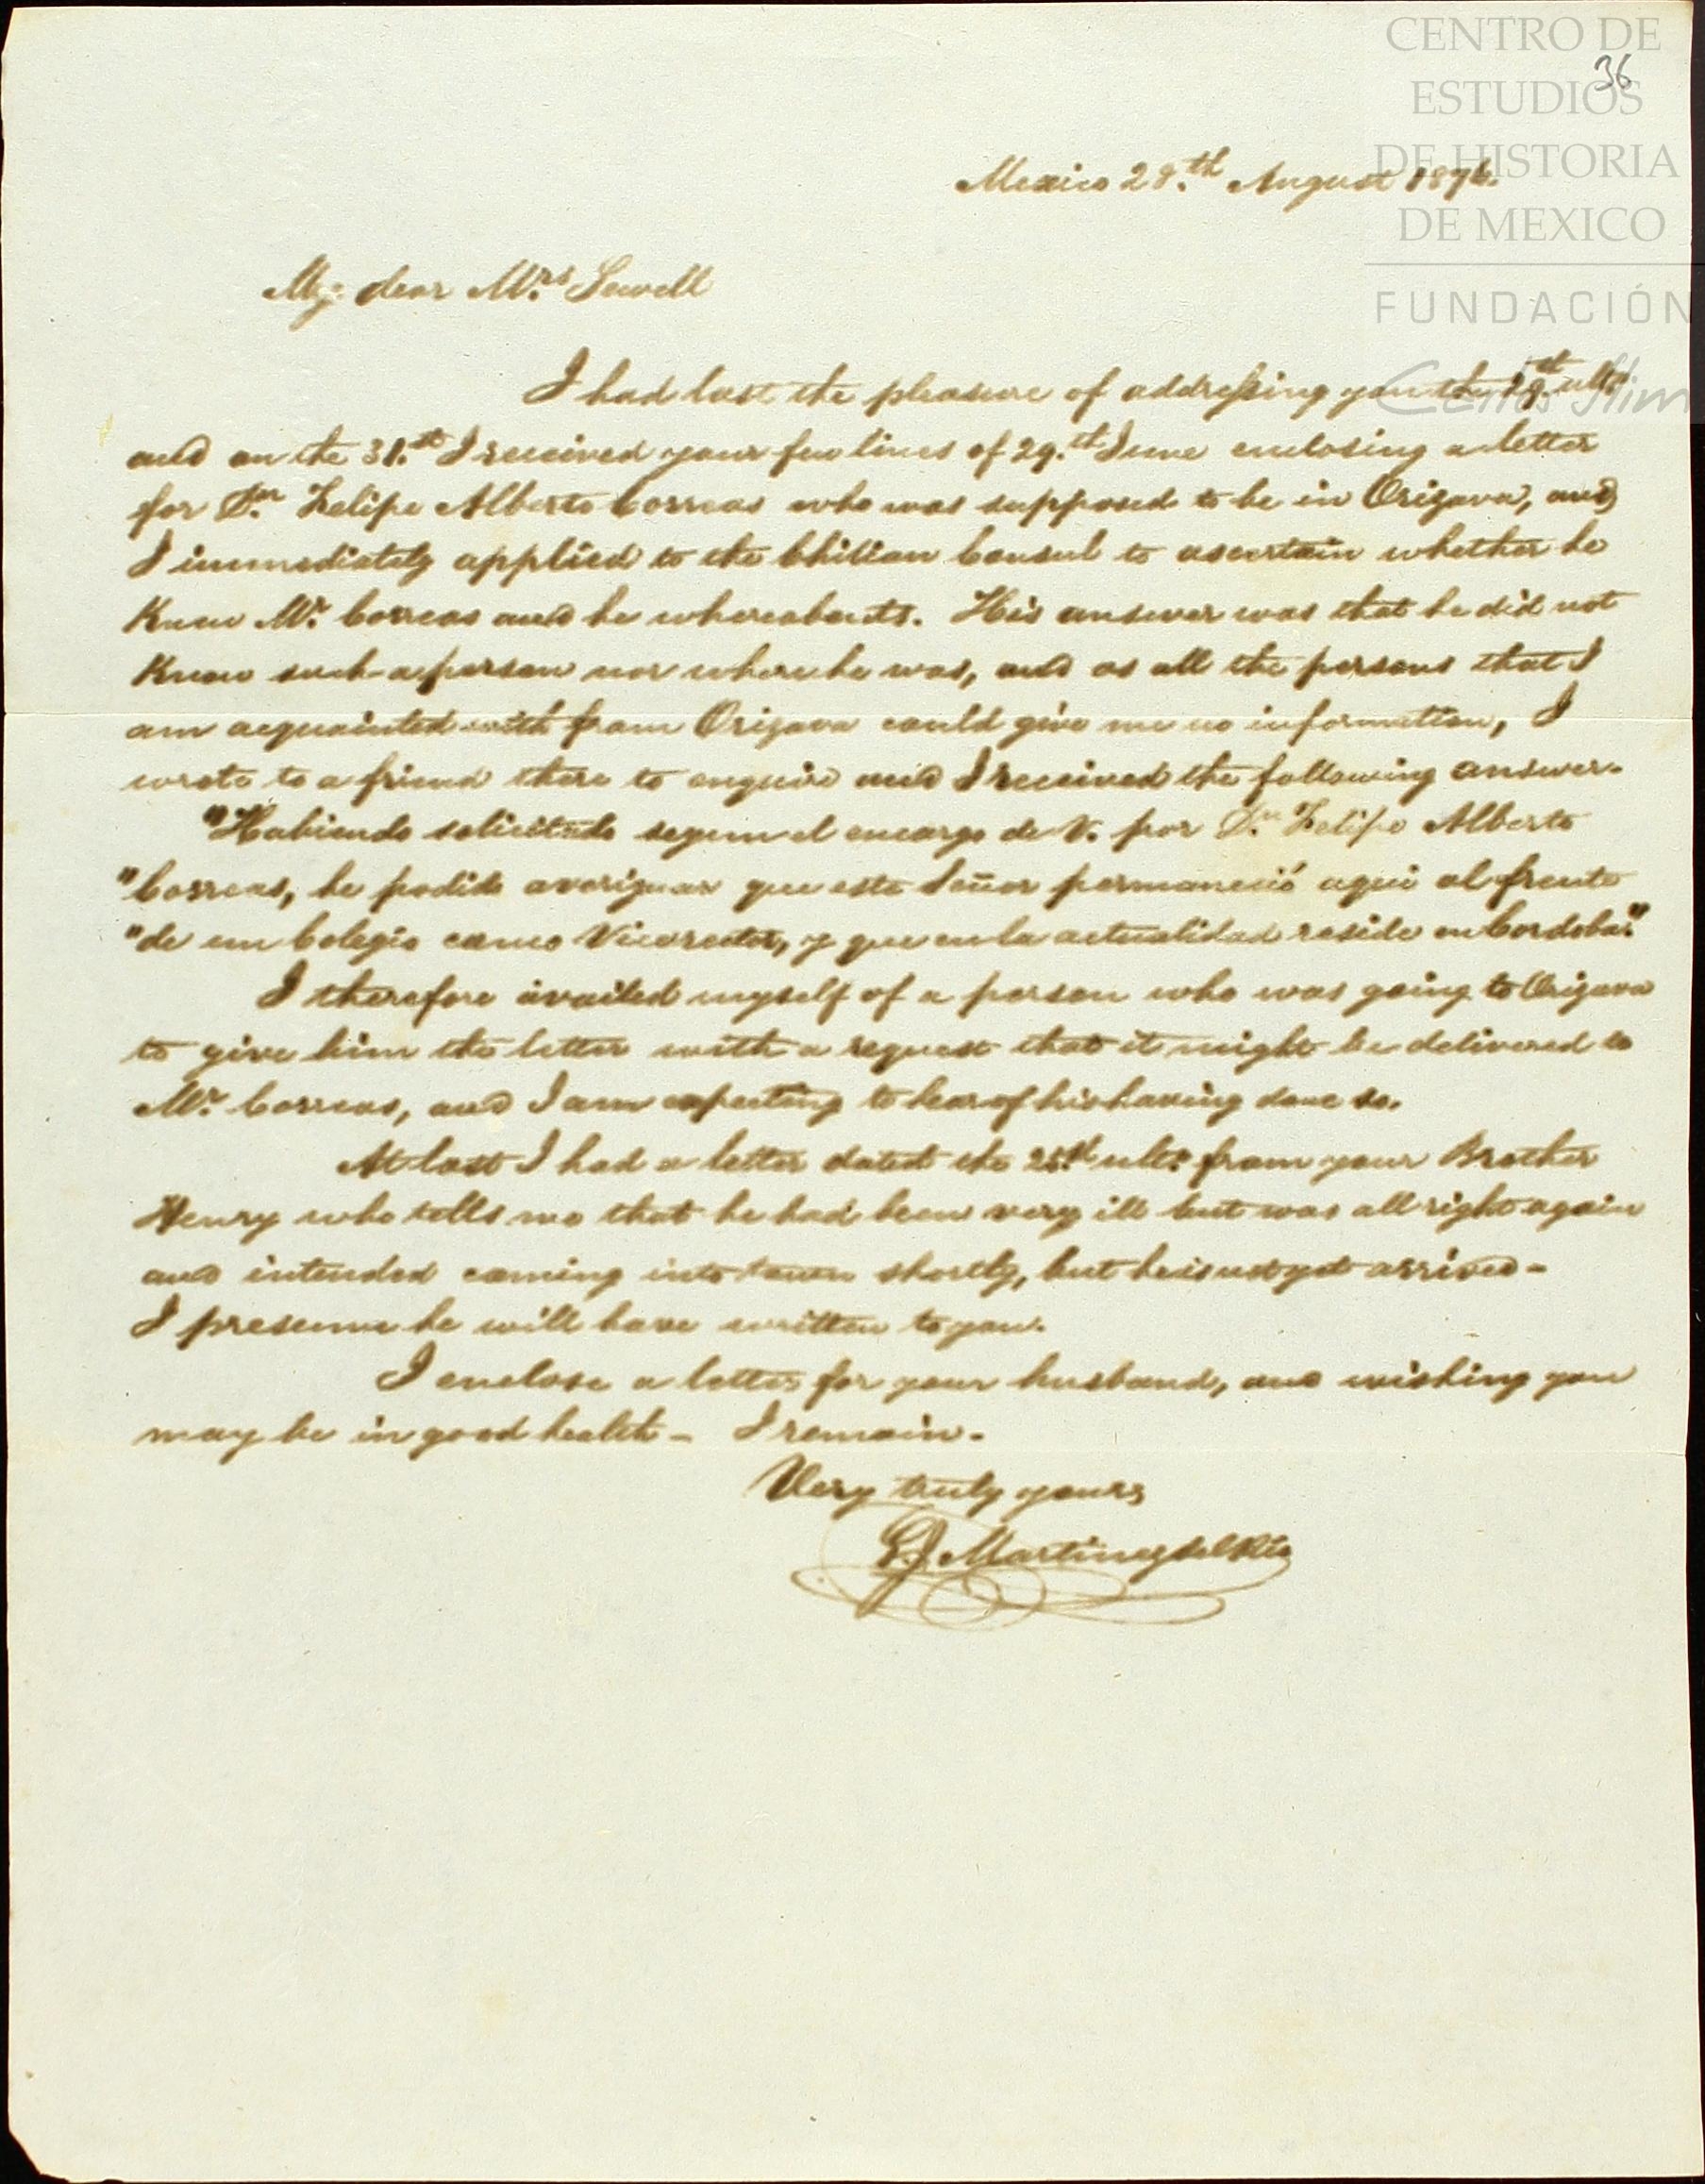 CENTRO DE
ESTUDIOS
DE HISTORIA
DE MEXICO
FUNDACIÓN
Carlos Slim
36
Mexico 28.th August 1874.
My dear Mrs Sewell
I had last the pleasure of addressing you the ult.o
and on the 31.st I received your few lines of 29.th June enclosing a letter
for D.n Felipe Alberto Correas who was supposed to be in Orizava, and
I immediately applied to the Chilian Consul to ascertain whether he
knew Mr. Correas and he whereabouts. His answer was that he did not
know such a person nor where he was, and as all the persons that I
am acquainted with from Orizava could give me no information, I
wrote to a friend there to enquire and I received the following answer.
"Habiendo solicitado segun el encargo de V. por D.n Felipe Alberto
"Correas, he podido averiguar que este Señor permaneció aqui al frente
"de un Colegio como Vicerector, y que en la actualidad reside en Cordoba."
I therefore availed myself of a person who was going to Orizava
to give him the letter with a request that it might be delivered to
Mr. Correas, and I am expecting to hear of his having done so.
At last I had a letter dated the ult.o from your Brother
Henry who tells me that he had been very ill but was all right again
and intended coming into town shortly, but he is not yet arrived -
I presume he will have written to you.
I enclose a letter for your husband, and wishing you
may be in good health - I remain.
Very truly yours
Martinez del Rio